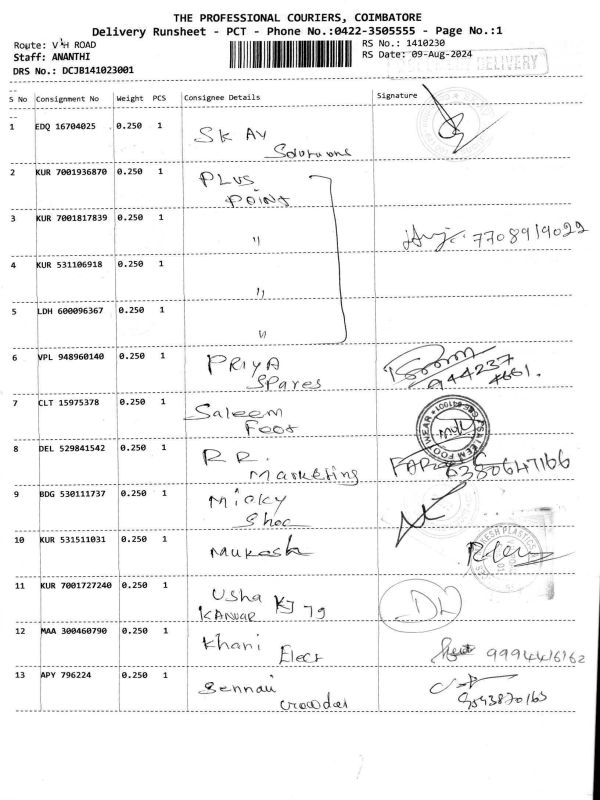 THE PROFESSIONAL COURIERS, COIMBATORE
Delivery Runsheet - PCT - Phone No.:0422-3505555 - Page No.:1
Route: V H ROAD RS No.: 1410230
Staff: ANANTHI RS Date: 09-Aug-2024
DELIVERY
DRS No.: DCJB141023001
S No Consignment No Weight PCS Consignee Details Signature
1 EDQ 16704025 0.250 1 SK AV
Solutions
2 KUR 7001936870 0.250 1 PLUS
POINT
3 KUR 7001817839 0.250 1 " 7708919022
4 KUR 531106918 0.250 1 "
5 LDH 600096367 0.250 1 "
6 VPL 948960140 0.250 1 PRIYA
Spares 944237
4661.
7 CLT 15975378 0.250 1 Saleem
Foot
SALEEM FOOT WEAR
8 DEL 529841542 0.250 1 R.R.
Marketing 6380647166
9 BDG 530111737 0.250 1 Micky
Shoe
10 KUR 531511031 0.250 1 Mukesh
11 KUR 7001727240 0.250 1 Usha
KANWAR
12 MAA 300460790 0.250 1 Khani
Elect 9994416162
13 APY 796224 0.250 1 Sennai